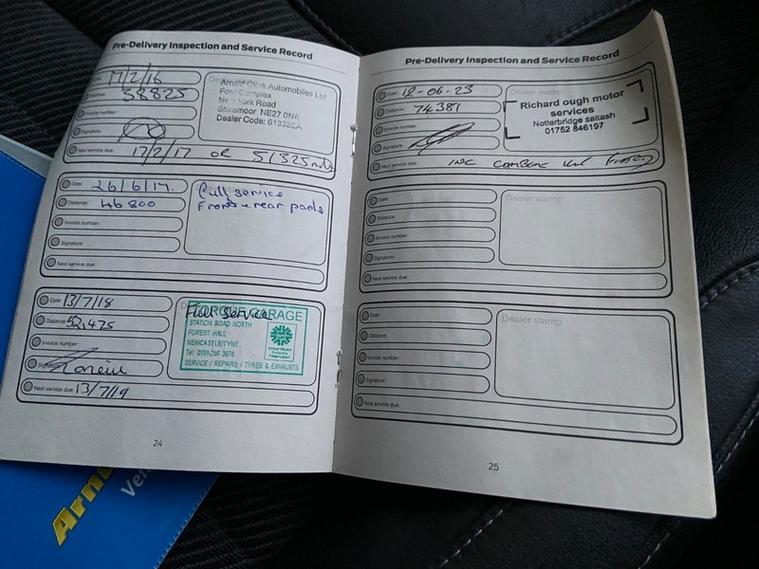 Pre-Delivery Inspection and Service Record
17/2/16
38825
Invoice number:
Signature:
Next service due: 17/2/17 OR 51325
Arnold Clark Automobiles Ltd
Fort Complex
New York Road
Shiremoor NE27 0NA
Dealer Code:
Date: 26/6/17.
Distance: 46800
Invoice number:
Signature:
Next service due:
Full service
Front + rear pads
Date: 13/7/18
Distance: 52,475
Invoice number:
Next service due: 13/7/19
Full Service
GARAGE
STATION ROAD NORTH
FOREST HALL
NEWCASTLE/TYNE
SERVICE / REPAIRS / TYRES & EXHAUSTS
24
Arn
Pre-Delivery Inspection and Service Record
Date: 12-06-23
Distance: 74381
Invoice number:
Signature:
Next service due: INC CAMBELT
Dealer stamp
Richard ough motor
services
Notterbridge saltash
01752 846197
Date:
Distance:
Invoice number:
Signature:
Next service due:
Dealer stamp
Date:
Distance:
Invoice number:
Signature:
Next service due:
Dealer stamp
25